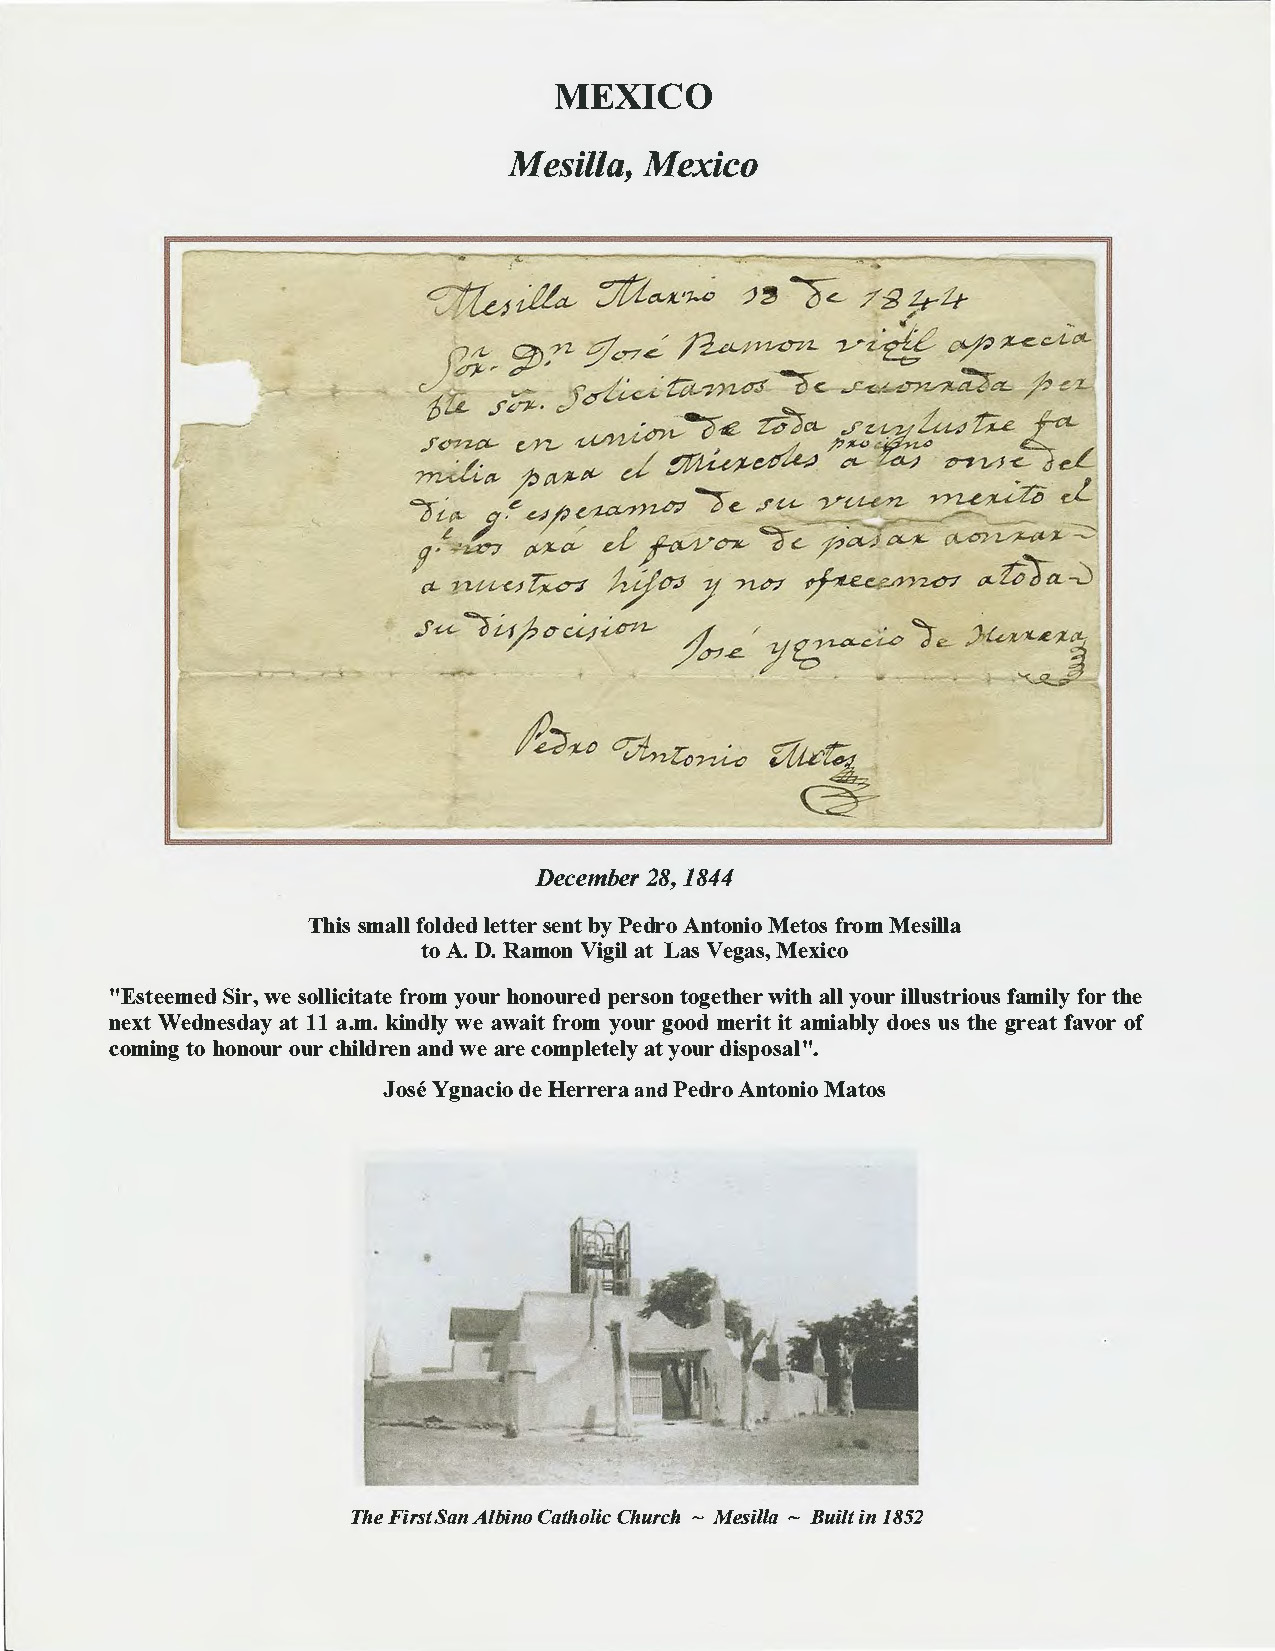 MEXICO
Mesilla, Mexico
Mesilla Marzo 13 de 1844
Sor. Dn José Ramon vigil aprecia
ble sór. Solicitamos de suonrada per
sona en union de toda suylustre fa
procsimo
milia para el Miercoles a las onse del
dia q.e esperamos de su vuen merito el
q.e nos ará el favor de pasar aonrar
a nuestros hijos y nos ofrecemos atoda
su dispocision
José ygnacio de Herrera
Pedro Antonio Metos
December 28, 1844
This small folded letter sent by Pedro Antonio Metos from Mesilla
to A. D. Ramon Vigil at Las Vegas, Mexico
"Esteemed Sir, we sollicitate from your honoured person together with all your illustrious family for the
next Wednesday at 11 a.m. kindly we await from your good merit it amiably does us the great favor of
coming to honour our children and we are completely at your disposal".
José Ygnacio de Herrera and Pedro Antonio Matos
The First San Albino Catholic Church ~ Mesilla ~ Built in 1852